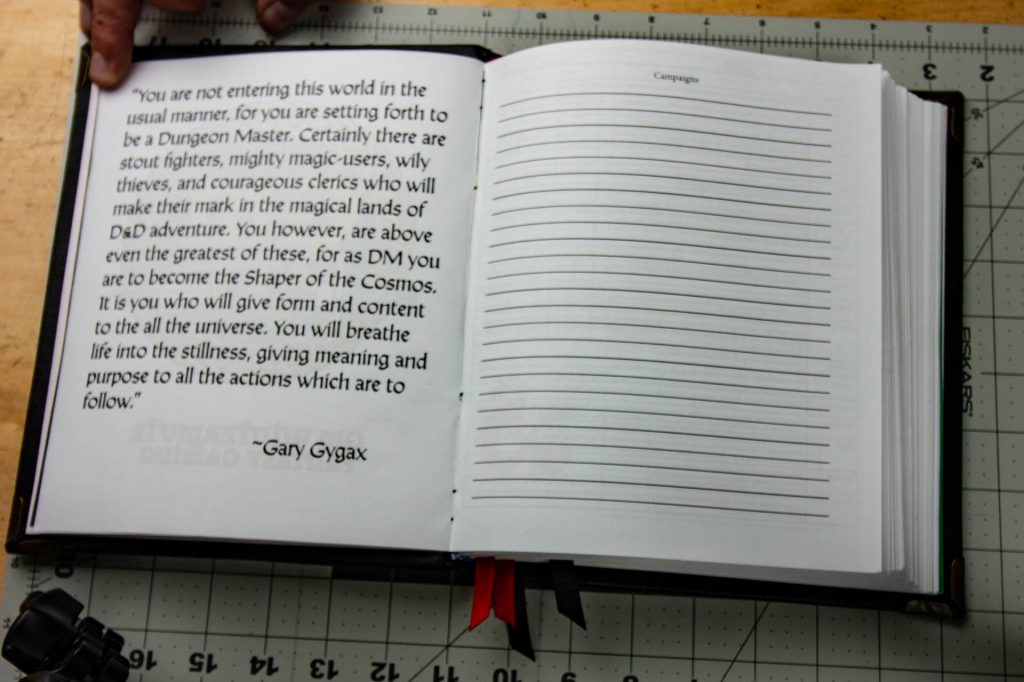 "You are not entering this world in the
usual manner, for you are setting forth to
be a Dungeon Master. Certainly there are
stout fighters, mighty magic-users, wily
thieves, and courageous clerics who will
make their mark in the magical lands of
D&D adventure. You however, are above
even the greatest of these, for as DM you
are to become the Shaper of the Cosmos.
It is you who will give form and content
to the all the universe. You will breathe
life into the stillness, giving meaning and
purpose to all the actions which are to
follow."
~Gary Gygax
Campaigns
FISKARS
3 2
16 15 14 13 12 11 10 9 8 7 6 5 4 3 2